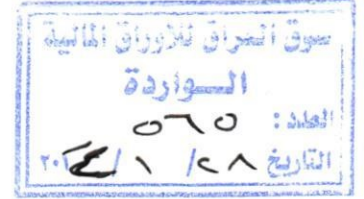 سوق العراق للأوراق المالية
الـــواردة
العدد : ٥٦٥
التاريخ ٢٨ / ١ / ٢٠٢٤